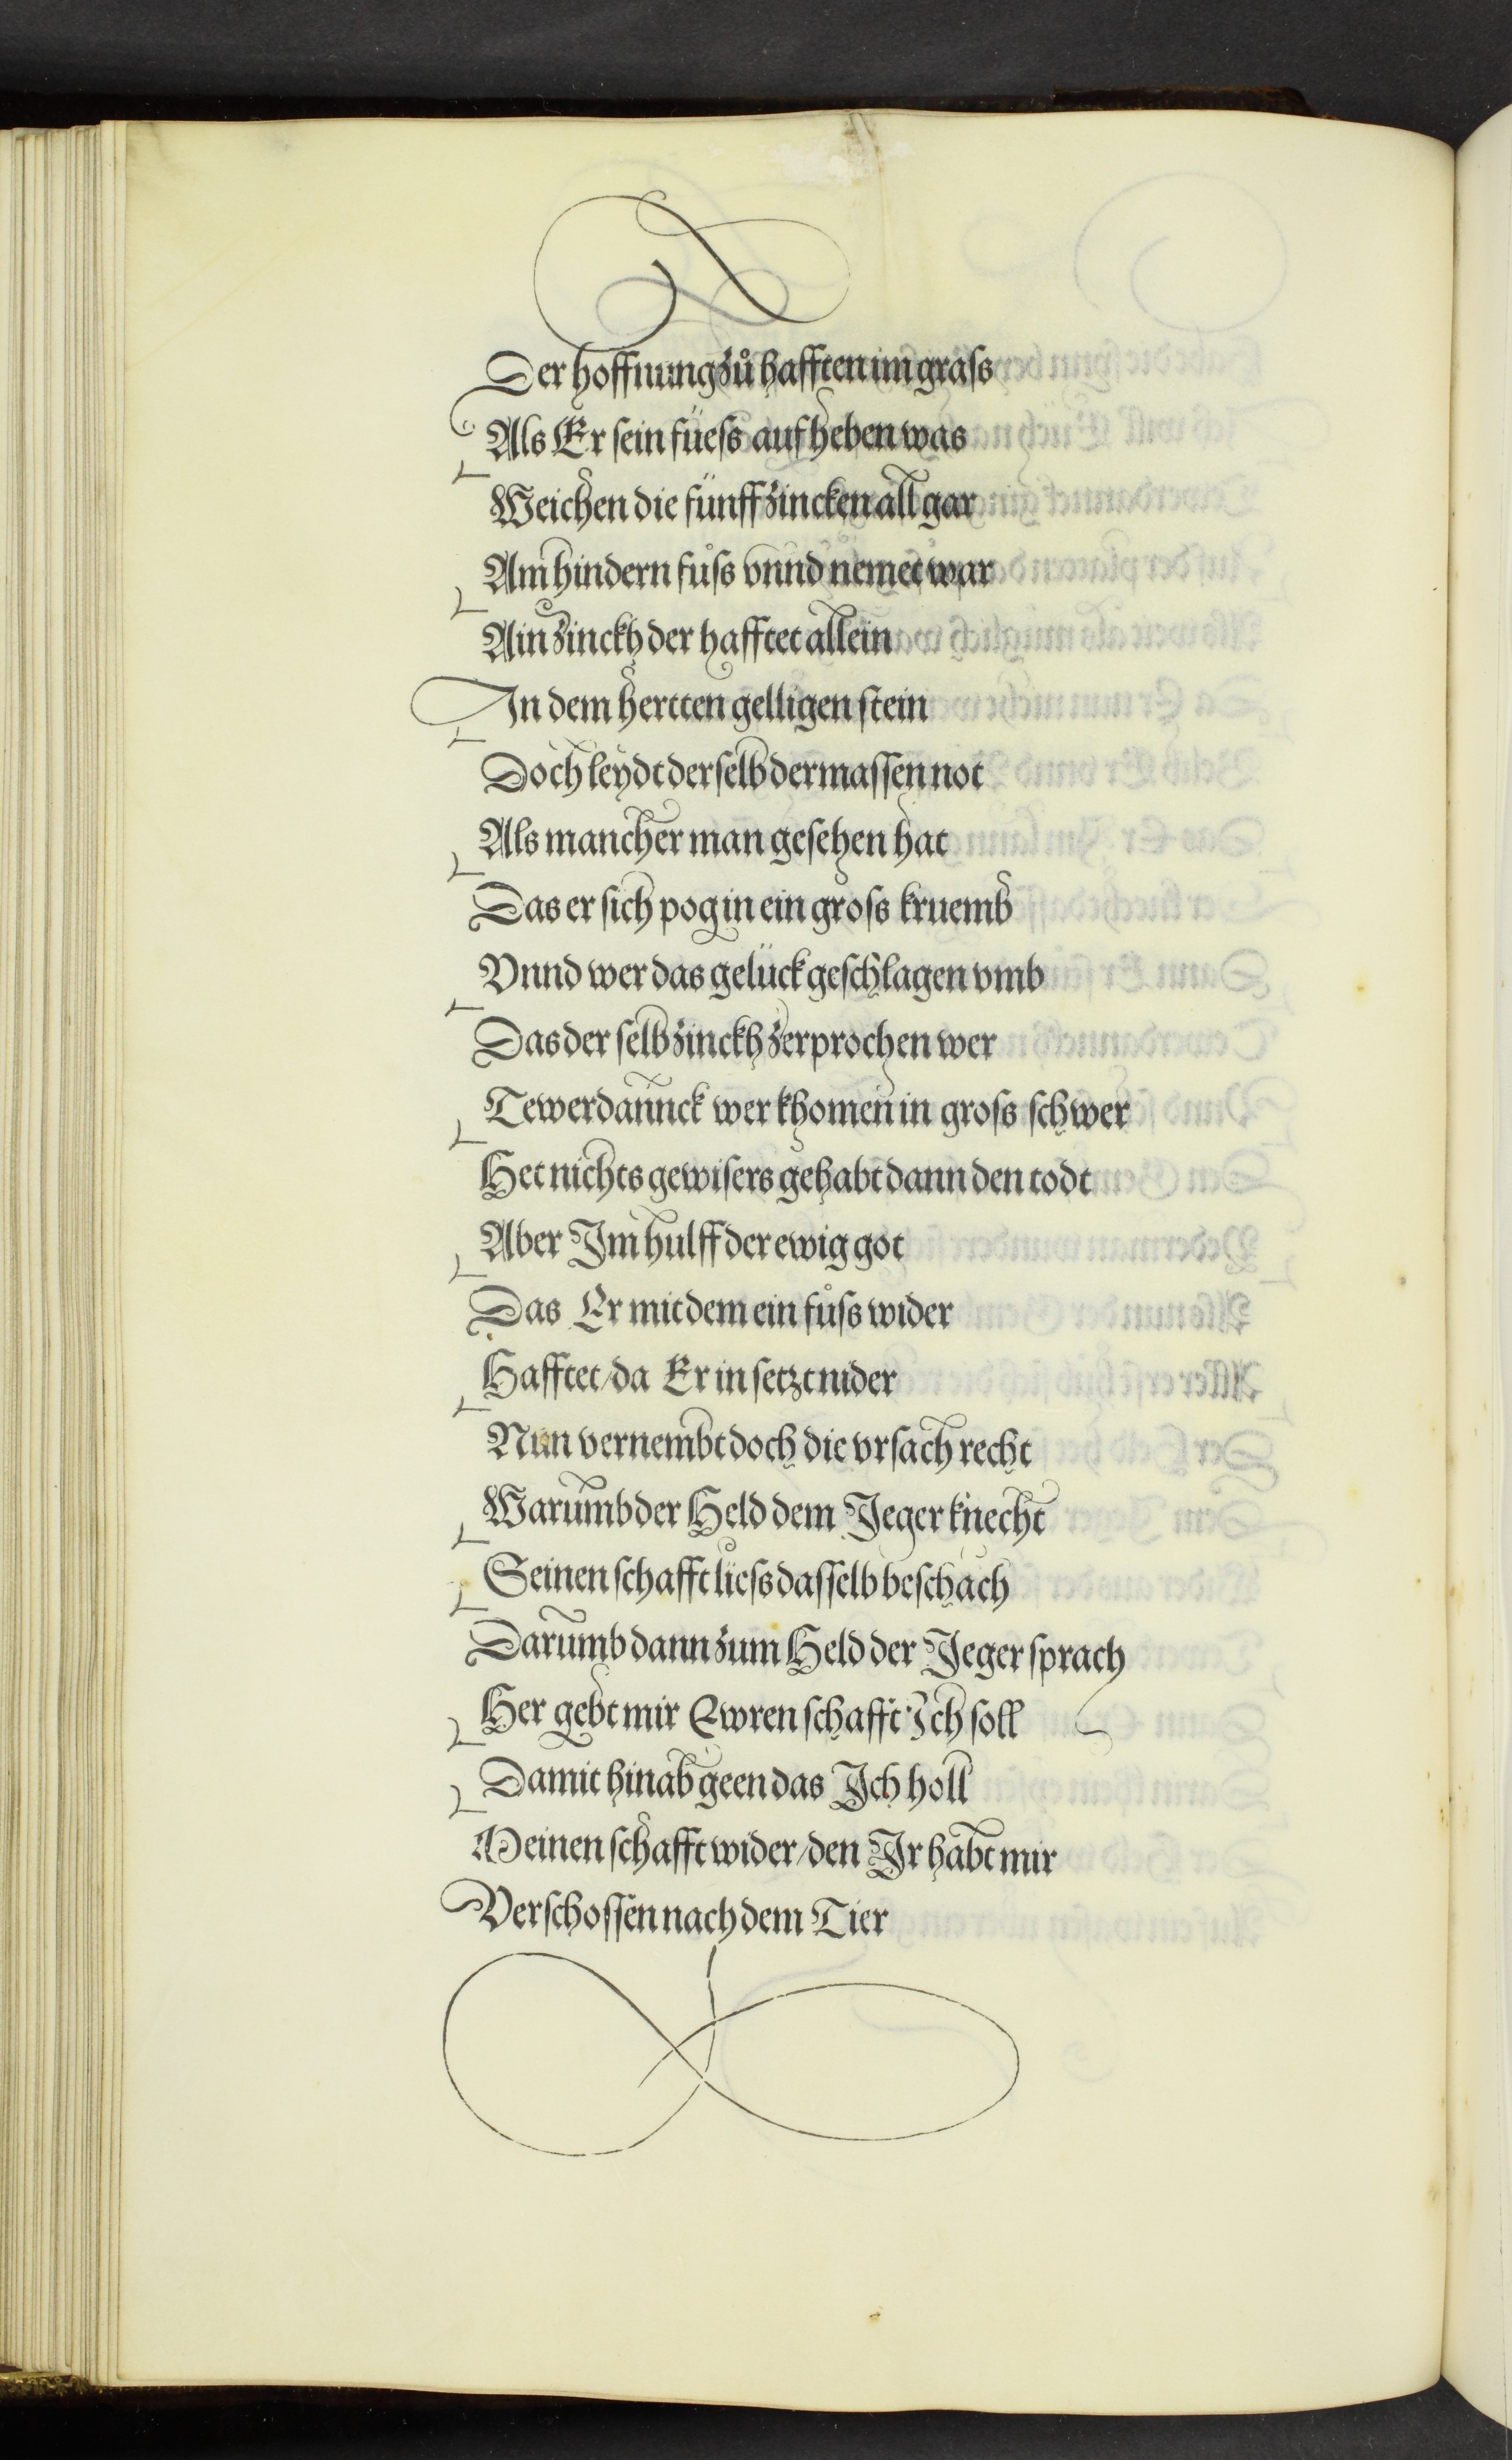 Der hoffnung zů hafften im graſs
Als Er ſein füeſs auf heben was
Weichen die fünff zincken all gar
Am hindern fůſs vnnd nemet war
Ain zinckh der hafftet allein
In dem hertten gelligen ſtein
Doch leydt derſelb dermaſſen not
Als mancher man geſehen hat
Das er ſich pog in ein groſs kruemb
Vnnd wer das gelück geſchlagen vmb
Das der ſelb zinckh zerprochen wer
Tewerdannck wer khomen in groſs ſchwer
Het nichts gewiſers gehabt dann den todt
Aber Im hulff der ewig got
Das Er mit dem ein fůſs wider
Hafftet/da Er in ſetzt nider
Nun vernembt doch die vrſach recht
Warumb der Held dem Jeger knecht
Seinen ſchafft lieſs daſſelb beſchach
Darumb dann zum Held der Jeger ſprach
Her gebt mir Ewren ſchafft Ich ſoll
Damit hinab geen das Ich holl
Meinen ſchafft wider/den Ir habt mir
Verſchoſſen nach dem Tier